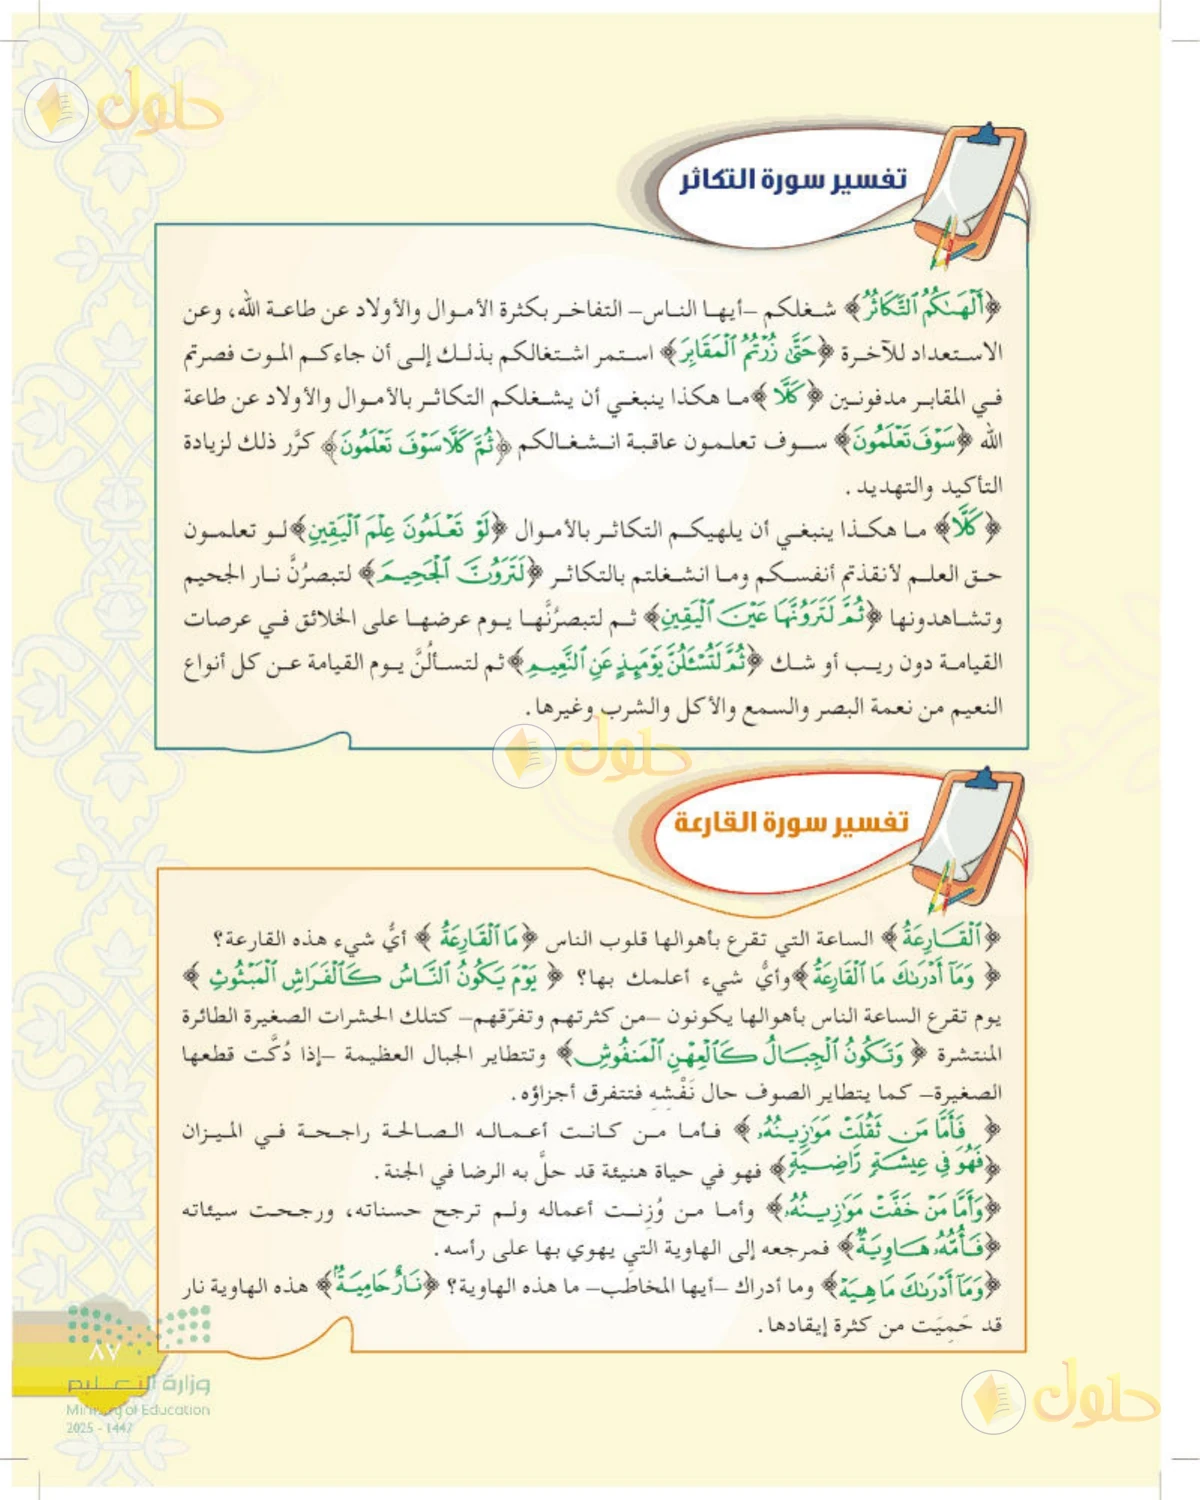 حلول
تفسير سورة التكاثر
﴿أَلْهَىٰكُمُ ٱلتَّكَاثُرُ﴾ شغلكم –أيها الناس– التفاخر بكثرة الأموال والأولاد عن طاعة الله، وعن
الاستعداد للآخرة ﴿حَتَّىٰ زُرْتُمُ ٱلْمَقَابِرَ﴾ استمر اشتغالكم بذلك إلى أن جاءكم الموت فصرتم
في المقابر مدفونين ﴿كَلَّا﴾ ما هكذا ينبغي أن يشغلكم التكاثر بالأموال والأولاد عن طاعة
الله ﴿سَوْفَ تَعْلَمُونَ﴾ سوف تعلمون عاقبة انشغالكم ﴿ثُمَّ كَلَّا سَوْفَ تَعْلَمُونَ﴾ كرَّر ذلك لزيادة
التأكيد والتهديد .
﴿كَلَّا﴾ ما هكذا ينبغي أن يلهيكم التكاثر بالأموال ﴿لَوْ تَعْلَمُونَ عِلْمَ ٱلْيَقِينِ﴾ لو تعلمون
حق العلم لأنقذتم أنفسكم وما انشغلتم بالتكاثر ﴿لَتَرَوُنَّ ٱلْجَحِيمَ﴾ لتبصرُنَّ نار الجحيم
وتشاهدونها ﴿ثُمَّ لَتَرَوُنَّهَا عَيْنَ ٱلْيَقِينِ﴾ ثم لتبصرُنَّها يوم عرضها على الخلائق في عرصات
القيامة دون ريب أو شك ﴿ثُمَّ لَتُسْـَٔلُنَّ يَوْمَئِذٍ عَنِ ٱلنَّعِيمِ﴾ ثم لتسألُنَّ يوم القيامة عن كل أنواع
النعيم من نعمة البصر والسمع والأكل والشرب وغيرها .
حلول
تفسير سورة القارعة
﴿ٱلْقَارِعَةُ﴾ الساعة التي تقرع بأهوالها قلوب الناس ﴿مَا ٱلْقَارِعَةُ﴾ أيُّ شيء هذه القارعة؟
﴿وَمَآ أَدْرَىٰكَ مَا ٱلْقَارِعَةُ﴾ وأيُّ شيء أعلمك بها؟ ﴿يَوْمَ يَكُونُ ٱلنَّاسُ كَٱلْفَرَاشِ ٱلْمَبْثُوثِ﴾
يوم تقرع الساعة الناس بأهوالها يكونون –من كثرتهم وتفرّقهم– كتلك الحشرات الصغيرة الطائرة
المنتشرة ﴿وَتَكُونُ ٱلْجِبَالُ كَٱلْعِهْنِ ٱلْمَنفُوشِ﴾ وتتطاير الجبال العظيمة –إذا دُكَّت قطعها
الصغيرة– كما يتطاير الصوف حال نَفْشِهِ فتتفرق أجزاؤه .
﴿فَأَمَّا مَن ثَقُلَتْ مَوَٰزِينُهُۥ﴾ فأما من كانت أعماله الصالحة راجحة في الميزان
﴿فَهُوَ فِى عِيشَةٍ رَّاضِيَةٍ﴾ فهو في حياة هنيئة قد حلَّ به الرضا في الجنة .
﴿وَأَمَّا مَنْ خَفَّتْ مَوَٰزِينُهُۥ﴾ وأما من وُزِنت أعماله ولم ترجح حسناته، ورجحت سيئاته
﴿فَأُمُّهُۥ هَاوِيَةٌ﴾ فمرجعه إلى الهاوية التي يهوي بها على رأسه .
﴿وَمَآ أَدْرَىٰكَ مَا هِيَهْ﴾ وما أدراك –أيها المخاطَب– ما هذه الهاوية؟ ﴿نَارٌ حَامِيَةٌۢ﴾ هذه الهاوية نار
قد حَمِيَت من كثرة إيقادها .
٨٧
وزارة التعليم
Ministry of Education
2025 - 1447
حلول